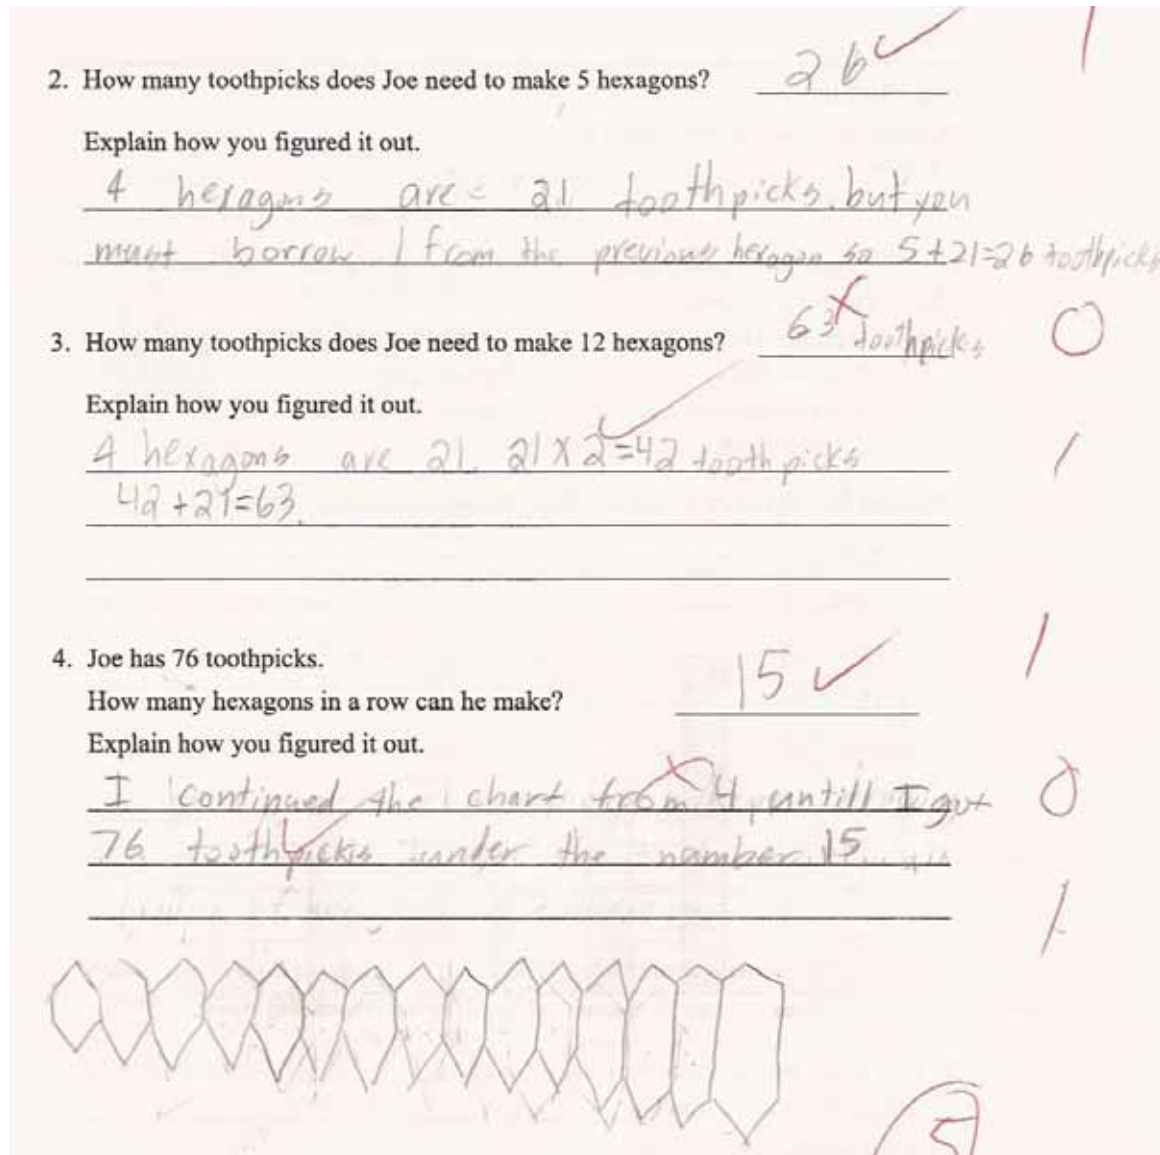 26 ✓ 1
2. How many toothpicks does Joe need to make 5 hexagons?
Explain how you figured it out.
4 hexagons are = 21 toothpicks. but you
must borrow 1 from the previous hexagon so 5+21=26 toothpicks
63 ✗ toothpicks 0
3. How many toothpicks does Joe need to make 12 hexagons?
Explain how you figured it out.
4 hexagons are 21. 21 x 2 = 42 toothpicks 1
42 + 21 = 63.
4. Joe has 76 toothpicks. 15 ✓ 1
How many hexagons in a row can he make?
Explain how you figured it out.
I continued the chart from 4, untill I got 0
76 toothpicks under the number 15
1
5